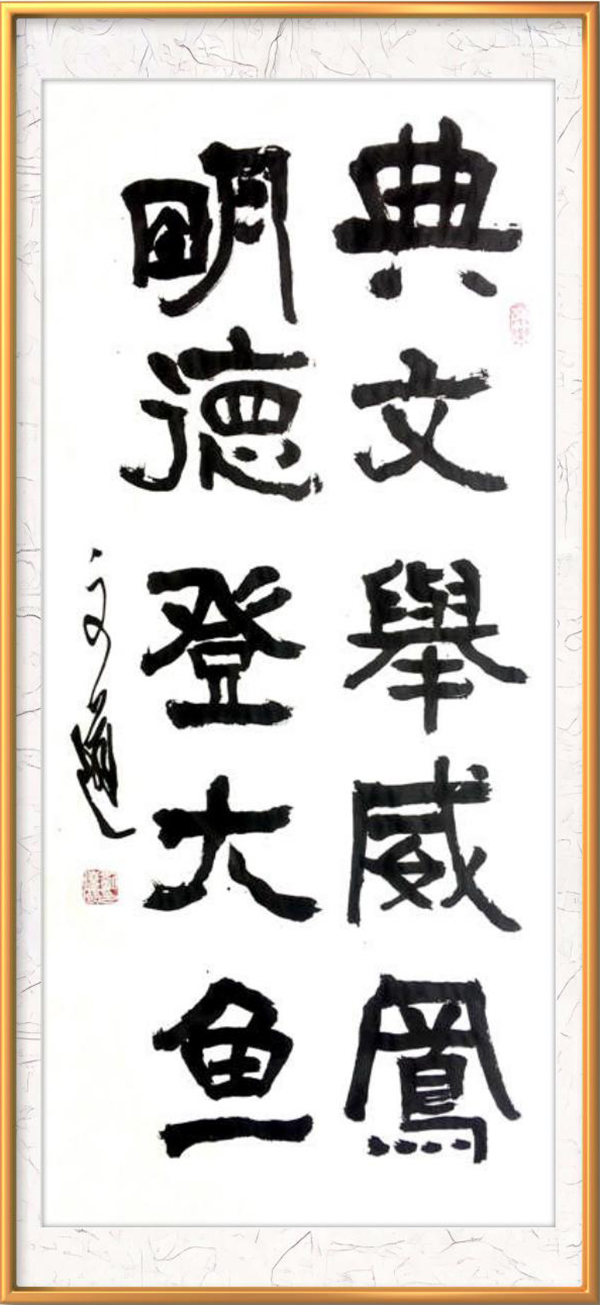 典文舉威鳳
明德登大鱼